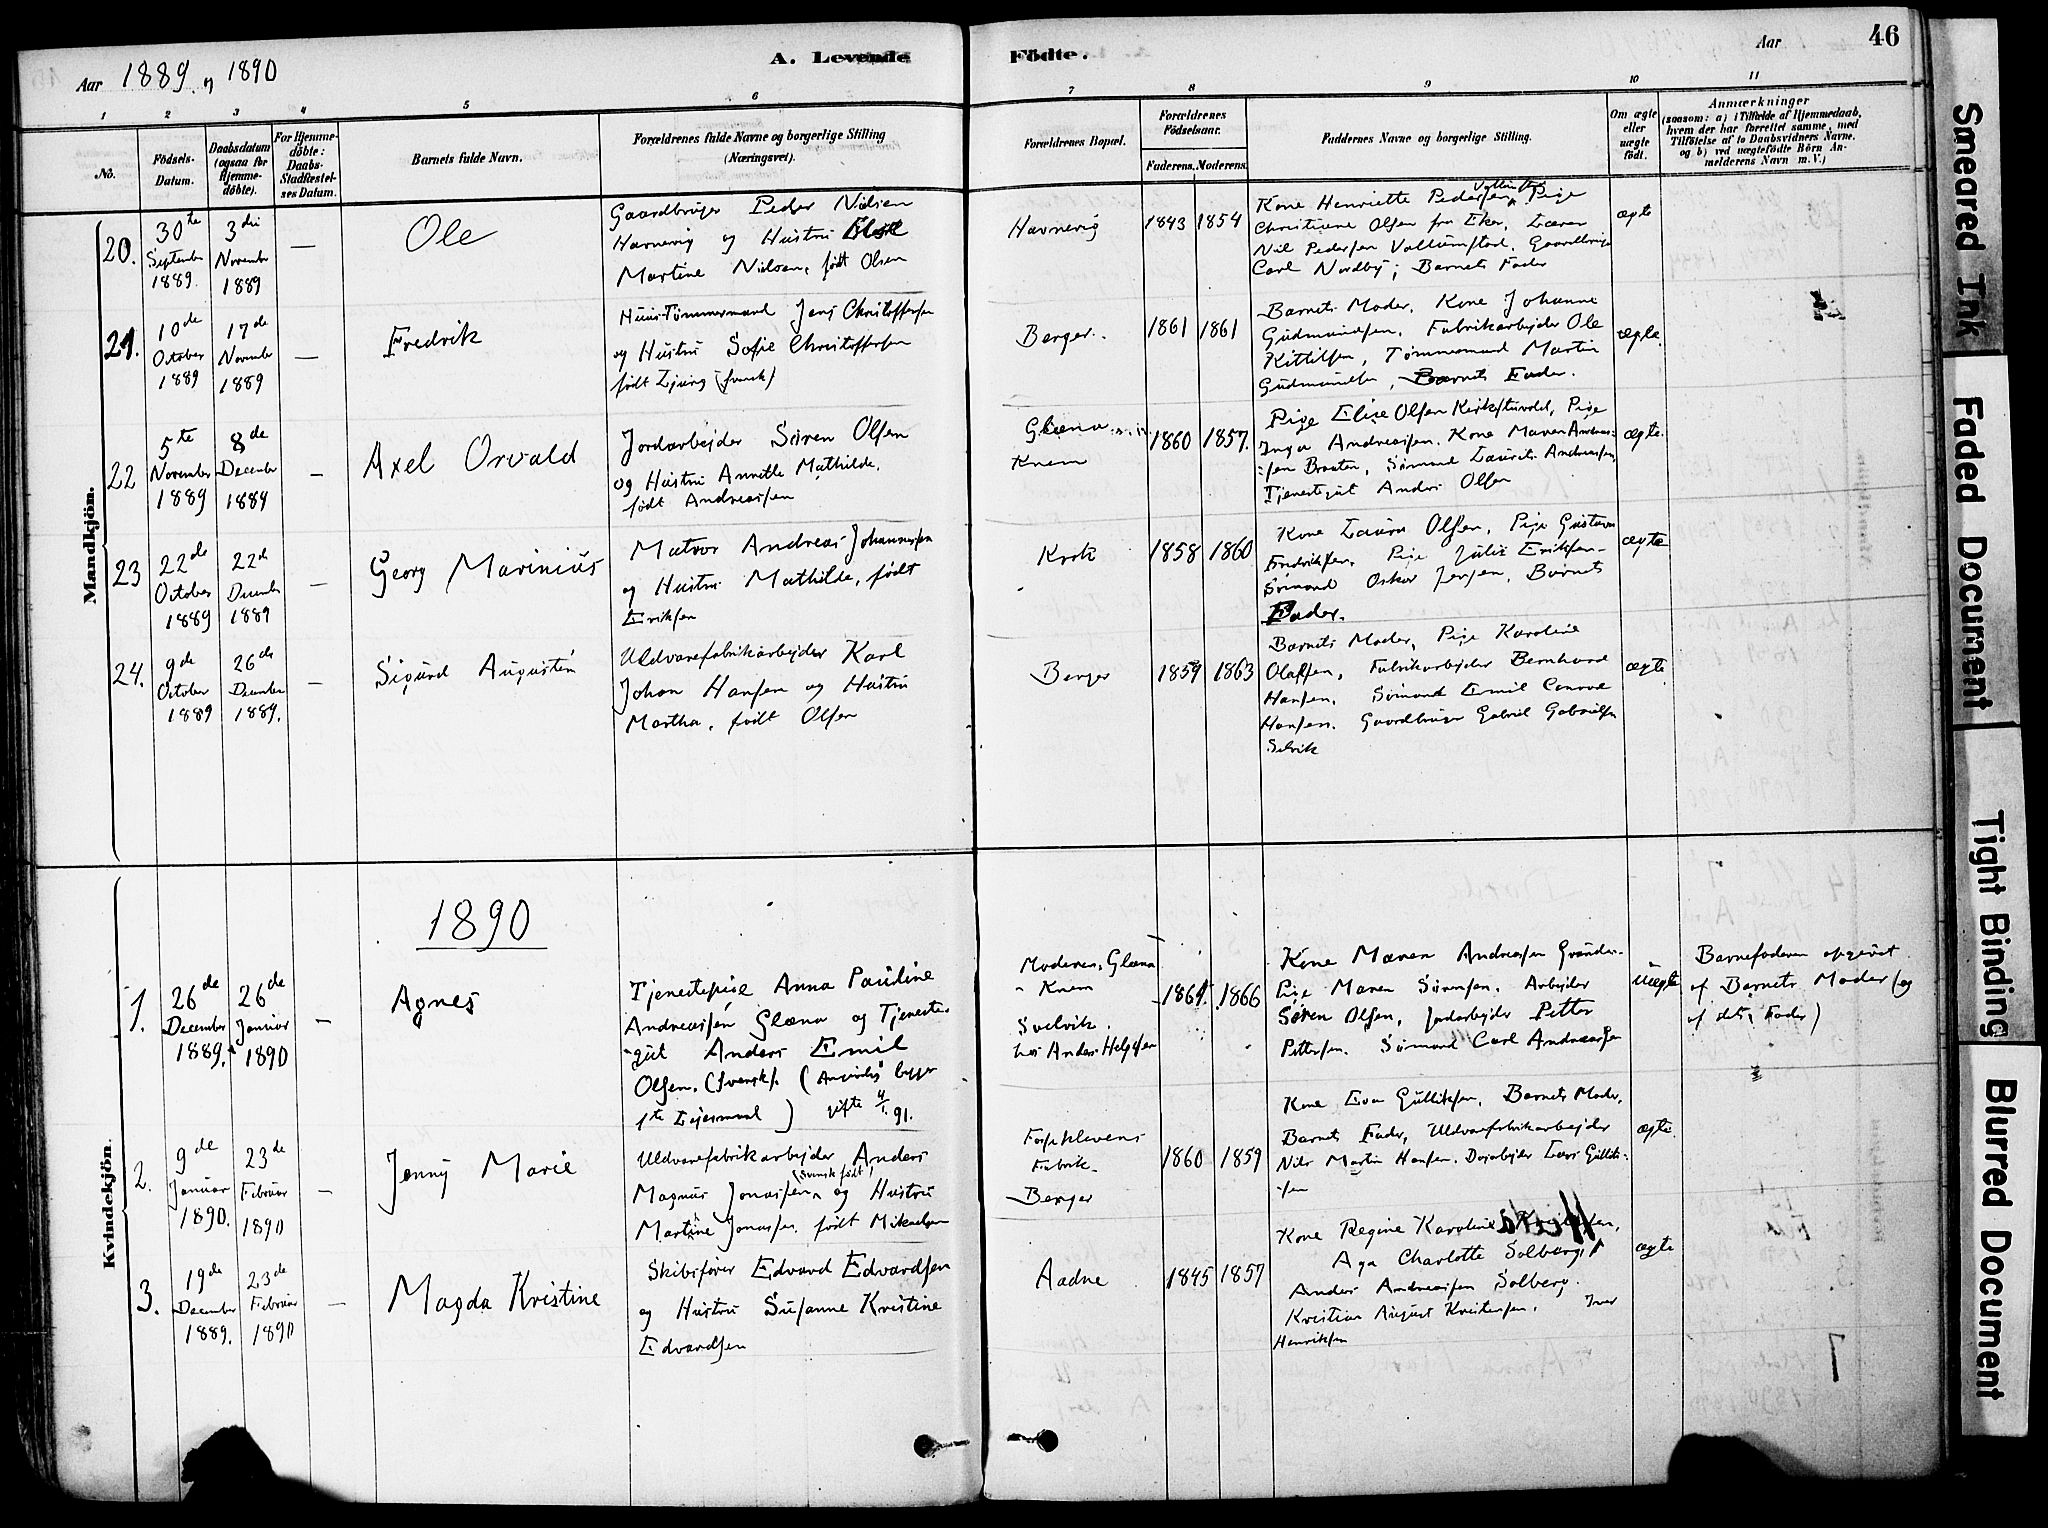 Aar 1889 og 1890
A. Levende Födte.
Aar
46
1 2 3 4 5 6 7 8 9 10 11
No.
Födsels-Datum.
Daabsdatum (ogsaa for Hjemme-döbte).
For Hjemme-döbte: Daabs-Stadfæstel-ses Datum.
Barnets fulde Navn.
Forældrenes fulde Navne og borgerlige Stilling (Næringsvei).
Forældrenes Bopæl.
Forældrenes Födselsaar.
Faderens. Moderens.
Faddernes Navne og borgerlige Stilling.
Om ægte eller uægte födt.
Anmærkninger
(saasom: a) i Tilfælde af Hjemmedaab, hvem der har forrettet samme, med Tilföielse af to Daabsvidners Navne, og b) ved uægtefödte Börn An-melderens Navn m.V.)
Mandkjön.
20.
30te September 1889.
3die November 1889
—
Ole
Gaardbruger Peder Nielsen
Havnevig og Hustru
Martine Nielsen, født Olsen
Havnevig
1843 1854
Kone Henriette Pedersen Pige
Christiane Olsen fra Eker, Lærer
Nil Pedersen Vallumstad, Gaardbruger
Carl Nordby; Barnets Fader
ægte
21.
10de October 1889
17de November 1889
—
Fredrik
Huus-Tømmermand Jens Christoffersen
og Hustru Sofie Christoffersen
født Ljung (svensk)
Berger.
1861 1861
Barnets Moder, Kone Johanne
Gudmundsen, Fabrikarbejder Ole
Kittilsen, Tømmermand Martin
Gudmundsen, Barnets Fader.
ægte.
22
5te November 1889
8de December 1889
—
Axel Orvald
Jordarbejder Søren Olsen
og Hustru Annette Mathilde,
født Andreassen
Glæna
Knem
1860 1857.
Pige Elise Olsen Kirkstuvold, Pige
Inga Andreassen. Kone Maren Andreas-
sen Braaten, Sømand Laurits Andreassen,
Tjenestegut Anders Olsen
ægte.
23
22de October 1889
22d December 1889
—
Georg Marinius
Matros Andreas Johannessen
og Hustru Mathilde, født
Eriksen
Krok
1858 1860
Kone Laura Olsen, Pige Gustava
Fredriksen, Pige Julie Eriksen-
Sømand Oskar Jensen, Barnets
Fader.
ægte
24.
9de October 1889
26de December 1889.
—
Sigurd Augustin
Uldvarefabrikarbejder Karl
Johan Hansen og Hustru
Martha, født Olsen
Berger
1859 1863
Barnets Moder, Pige Karoline
Olafsen, Fabrikarbejder Bernhard
Hansen, Sømand Emil Conrad
Hansen. Gaardbruger Gabriel Gabrielsen
Selvik
ægte
Kvindekjön.
1890
1.
26de December 1889.
26de Januar 1890
—
Agnes
Tjenestepige Anna Pauline
Andreassen Glæna og Tjeneste-
gut Anders Emil
Olsen. (svensk). (Angivelig begges
1te Lejermaal) gifte 4/1. 91.
Moderen, Glæna
Knem
Svelvik.
hos Anders Helgesen
1869. 1866
Kone Maren Andreassen Grunder-
Pige Maren Sørensen. Arbejder
Søren Olsen, Jordarbejder Petter
Pettersen. Sømand Carl Andreassen
uægte
Barnefaderen opgivet
af Barnets Moder (og
af dets Fader)
2.
9de Januar 1890.
23de Februar 1890
—
Jenny Marie
Uldvarefabrikarbejder Anders
Magnus Jonassen (svensk født) og Hustru
Martine Jonassen, født Mikaelsen
Fossekleven
Fabrik-
Berger
1860 1859
Kone Eva Gulliksen, Barnets Moder,
Barnets Fader, Uldvarefabrikarbejder
Nils Martin Hansen. Dagarbejder Lars Gullik-
sen
ægte.
3.
19de December 1889.
23de Februar 1890
—
Magda Kristine
Skibsfører Edvard Edvardsen
og Hustru Susanne Kristine
Edvardsen
Aadne
1845 1857
Kone Regine Karoline
Aga Charlotte Solberg,
Anders Andreassen Solberg.
Kristian August Kristensen. Iver
Henriksen
ægte
Smeared Ink
Faded Document
Tight Binding
Blurred Document